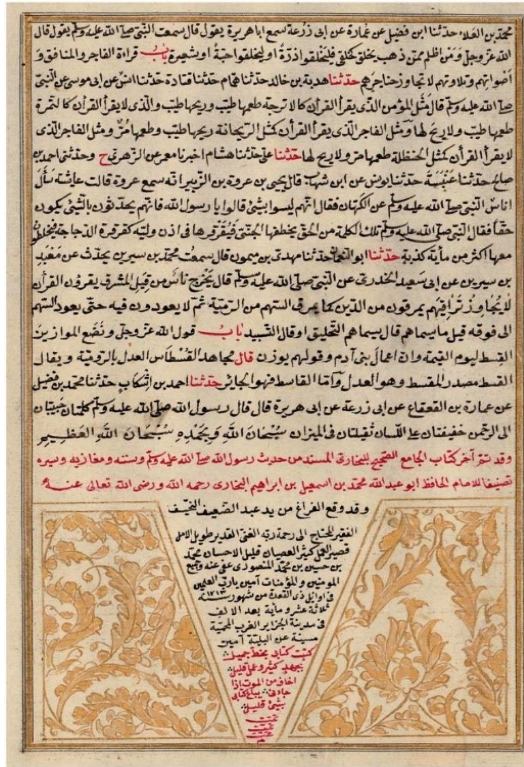 محمد بن العلاء حدثنا ابن فضيل عن عمارة عن ابى زرعة سمع ابا هريرة يقول قال سمعت النبى صلى الله عليه وسلم يقول قال
الله عز وجل ومن اظلم ممن ذهب يخلق كخلقى فليخلقوا ذرة او ليخلقوا حبة او شعيرة باب قراءة الفاجر والمنافق و
اصواتهم وتلاوتهم لا يجاوز حناجرهم حدثنا هدبة بن خالد حدثنا همام حدثنا قتادة حدثنا انس عن ابى موسى عن النبى
صلى الله عليه وسلم قال مثل المؤمن الذى يقرأ القرآن كالاترجة طعمها طيب وريحها طيب والذى لا يقرأ القرآن كالتمرة
طعمها طيب ولا ريح لها ومثل الفاجر الذى يقرأ القرآن كمثل الريحانة ريحها طيب وطعمها مر ومثل الفاجر الذى
لا يقرأ القرآن كمثل الحنظلة طعمها مر ولا ريح لها حدثنا على حدثنا هشام اخبرنا معمر عن الزهرى ح وحدثنى احمد بن
صالح حدثنا عنبسة حدثنا يونس عن ابن شهاب قال يحيى بن عروة بن الزبير انه سمع عروة قالت عائشة سأل
اناس النبى صلى الله عليه وسلم عن الكهان فقال انهم ليسوا بشئ قالوا يا رسول الله فانهم يحدثون بالشئ يكون
حقا فقال النبى صلى الله عليه وسلم تلك الكلمة من الحق يخطفها الجنى فيقرقرها فى اذن وليه كقرقرة الدجاجة فيخلطون
معها اكثر من مأية كذبة حدثنا ابو النعمان حدثنا مهدى بن ميمون قال سمعت محمد بن سيرين يحدث عن معبد
بن سيرين عن ابى سعيد الخدرى عن النبى صلى الله عليه وسلم قال يخرج ناس من قبل المشرق يقرؤن القرآن
لا يجاوز تراقيهم يمرقون من الدين كما يمرق السهم من الرمية ثم لا يعودون فيه حتى يعود السهم
الى فوقه قيل ما سيماهم قال سيماهم التحليق او قال التسبيد باب قول الله عز وجل ونضع الموازين
القسط ليوم القيمة وان اعمال بنى آدم وقولهم يوزن قال مجاهد القسطاس العدل بالرومية ويقال
القسط مصدر المقسط وهو العدل واما القاسط فهو الجائر حدثنا احمد بن اشكاب حدثنا محمد بن فضيل
عن عمارة بن القعقاع عن ابى زرعة عن ابى هريرة قال قال رسول الله صلى الله عليه وسلم كلمتان حبيبتان
الى الرحمن خفيفتان على اللسان ثقيلتان فى الميزان سبحان الله وبحمده سبحان الله العظيم
وقد تم آخر كتاب الجامع الصحيح للبخارى المسند من حديث رسول الله صلى الله عليه وسلم وسنته ومغازيه وسيره
تصنيف الامام الحافظ ابو عبد الله محمد بن اسمعيل بن ابراهيم البخارى رحمه الله ورضى الله تعالى عنه
وقد وقع الفراغ من يد عبد الضعيف النحيف
الفقير المحتاج الى رحمة ربه الغنى القدير طويل الامل
قصير العمل كثير العصيان قليل الاحسان محمد
بن حسين بن محمد المنصورى عفى عنه وجميع
المومنين والمؤمنات آمين يا رب العلمين
فى اوايل ذى القعدة من شهور سنة ١٢١٣
ثلاثة عشر ومأية بعد الالف
فى مدينة الجزاير الغرب المحمية
عن البلية آمين
كتبت كتابى بخط جميل
بجهد كثير وعلى قليل
اخاف من الموت اذا
جاءنى يباع كتابى
بشئ قليل
تمت
تمت